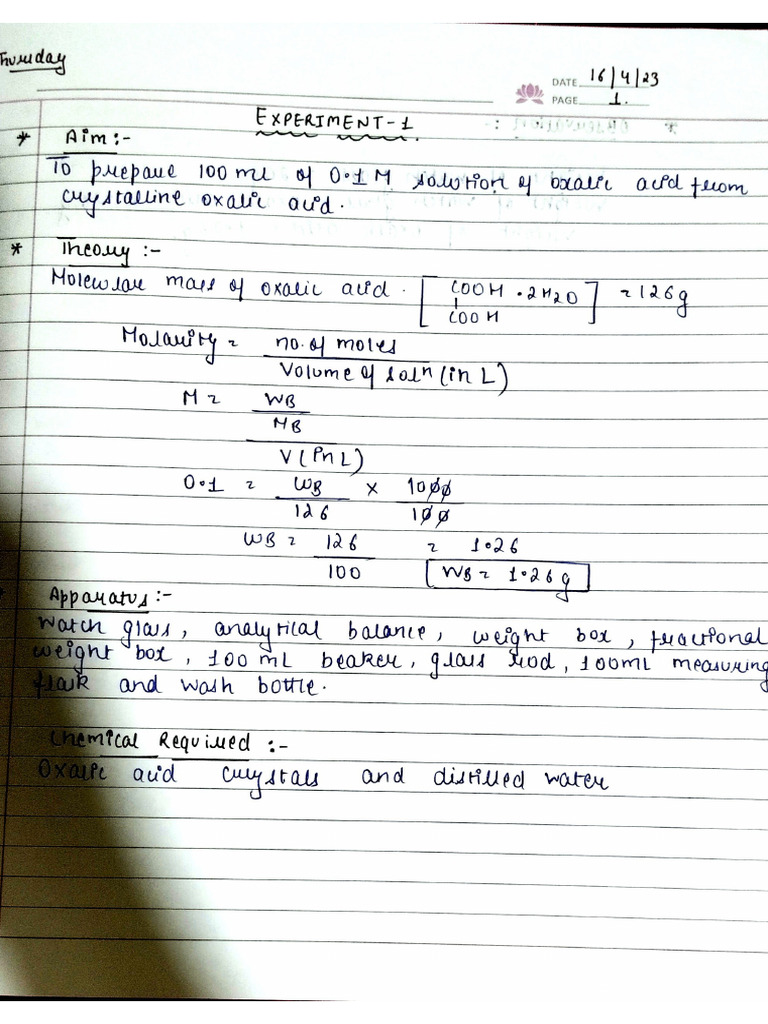 Thursday
DATE 16/4/23
PAGE 1.
EXPERIMENT-1
* Aim:-
To prepare 100 ml of 0.1 M solution of oxalic acid from
crystalline oxalic acid.
* Theory :-
Molecular mass of oxalic acid. [COOH . 2H2O] = 126g
COOH
Molarity = no. of moles
Volume of solⁿ (in L)
M = WB
MB
V (in L)
0.1 = WB × 1000
126 100
WB = 126 = 1.26
100 WB = 1.26 g
Apparatus:-
Watch glass, analytical balance, weight box, fractional
weight box, 100 mL beaker, glass rod, 100ml measuring
flask and wash bottle.
Chemical Required :-
Oxalic acid crystals and distilled water